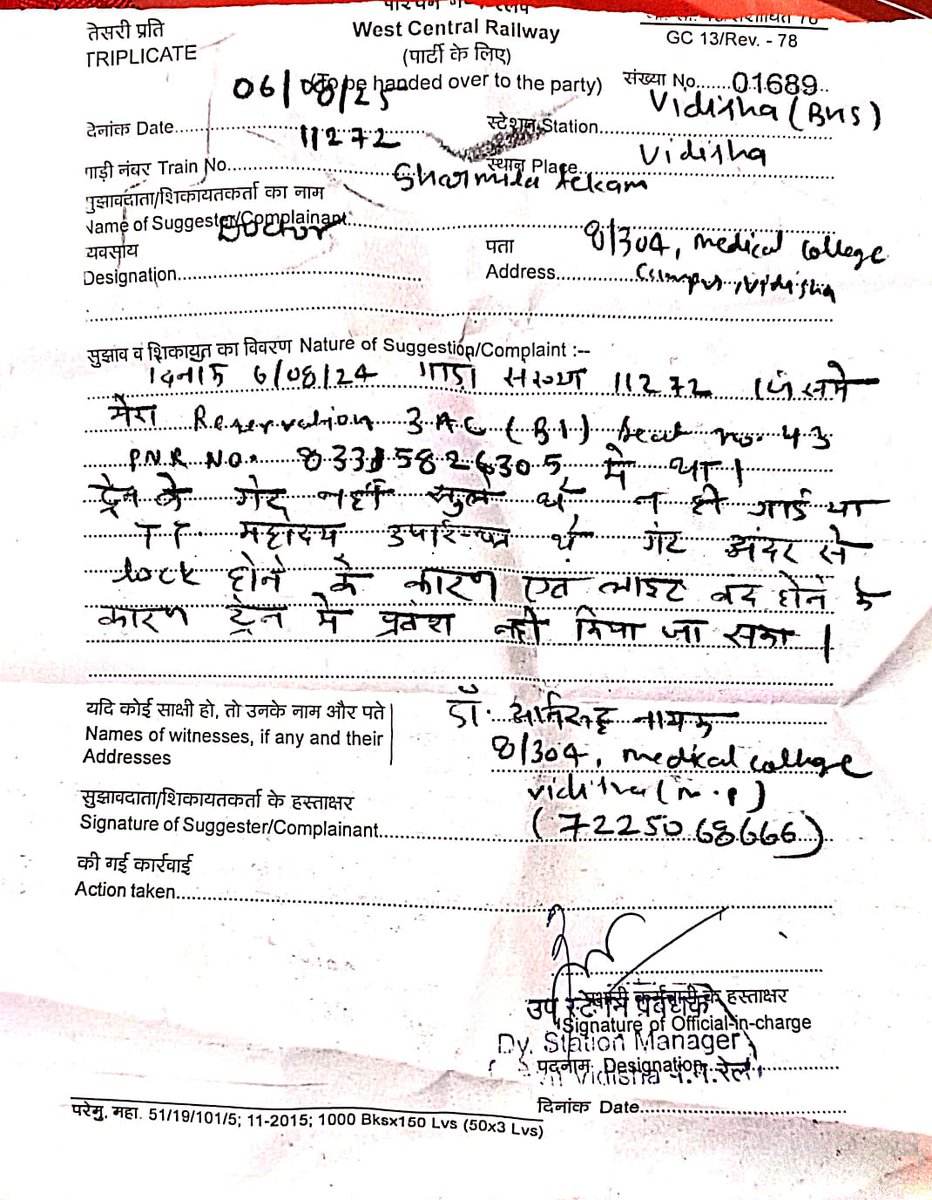 पश्चिम मध्य रेलवे
तेसरी प्रति
TRIPLICATE
West Central Railway
(पार्टी के लिए)
(To be handed over to the party)
GC 13/Rev. - 78
संख्या No......01689
देनांक Date 06/08/25
स्टेशन Station Vidisha (BHS)
गाड़ी नंबर Train No. 11272
स्थान Place Vidisha
सुझावदाता/शिकायतकर्ता का नाम
Name of Suggester/Complainant: Sharmila Tekam
यवसाय
Designation Doctor
पता
Address 8/304, medical college
Campus, Vidisha
सुझाव व शिकायत का विवरण Nature of Suggestion/Complaint :--
दिनांक 6/08/24 गाड़ी संख्या 11272 जिसमे
मेरा Reservation 3 AC (B1) Seat no. 43
P.N.R NO. में था।
ट्रेन के गेट नहीं खुले थे, न ही गार्ड या
TT महोदय उपस्थित थे गेट अंदर से
lock होने के कारण एवं लाइट बंद होने के
कारण ट्रेन मे प्रवेश नही किया जा सका।
यदि कोई साक्षी हो, तो उनके नाम और पते
Names of witnesses, if any and their
Addresses
डॉ. नायक
8/304, medical college
vidisha (m.p)
(7225068666)
सुझावदाता/शिकायतकर्ता के हस्ताक्षर
Signature of Suggester/Complainant
की गई कार्रवाई
Action taken
प्रभारी कर्मचारी के हस्ताक्षर
उप स्टेशन प्रबंधक
Signature of Official-in-charge
Dy. Station Manager
पदनाम Designation
Vidisha प.म.रेल
दिनांक Date
परेमु. महा. 51/19/101/5; 11-2015; 1000 Bksx150 Lvs (50x3 Lvs)